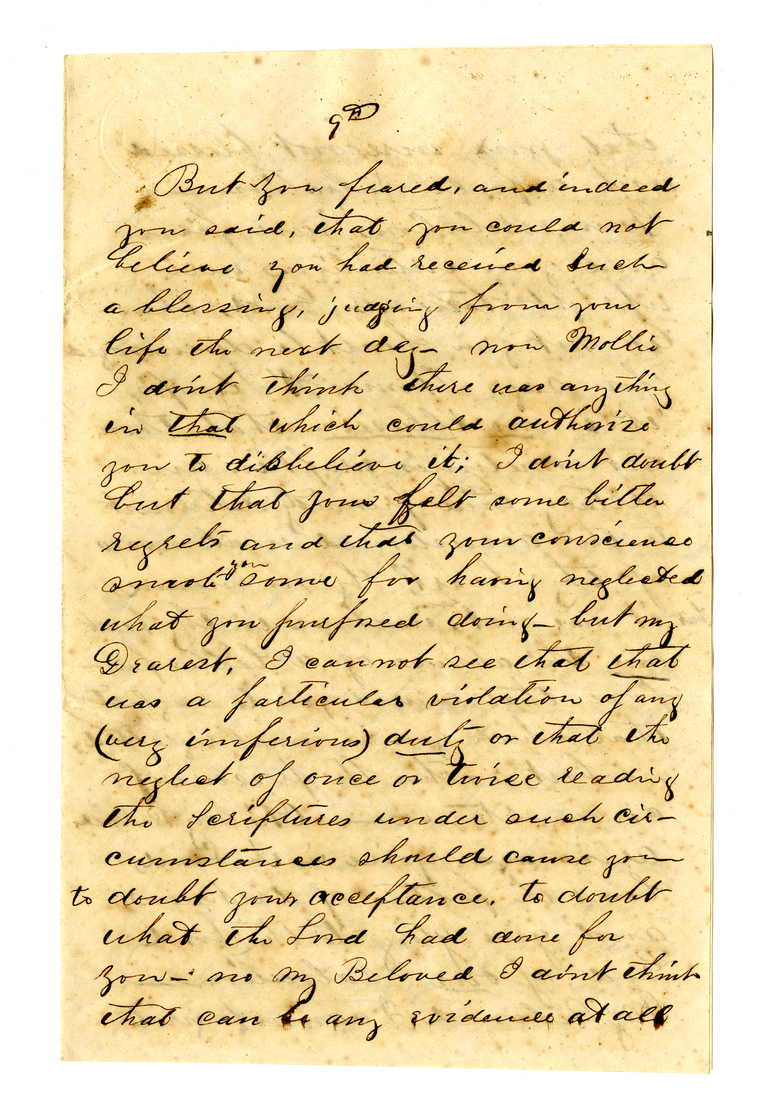 9th
But you feared, and indeed
you said, that you could not
believe you had received such
a blessing, judging from your
life the next day — now Mollie
I don't think there was anything
in that which could authorize
you to disbelieve it; I don't doubt
but that you felt some bitter
regrets and that your conscience
smote you some for having neglected
what you purposed doing — but my
Dearest, I cannot see that that
was a particular violation of any
(very imperious) duty or that the
neglect of once or twise reading
the Scriptures under such cir-
cumstances should cause you
to doubt your acceptance. to doubt
what the Lord had done for
you — no my Beloved I don't think
that can be any evidence at all